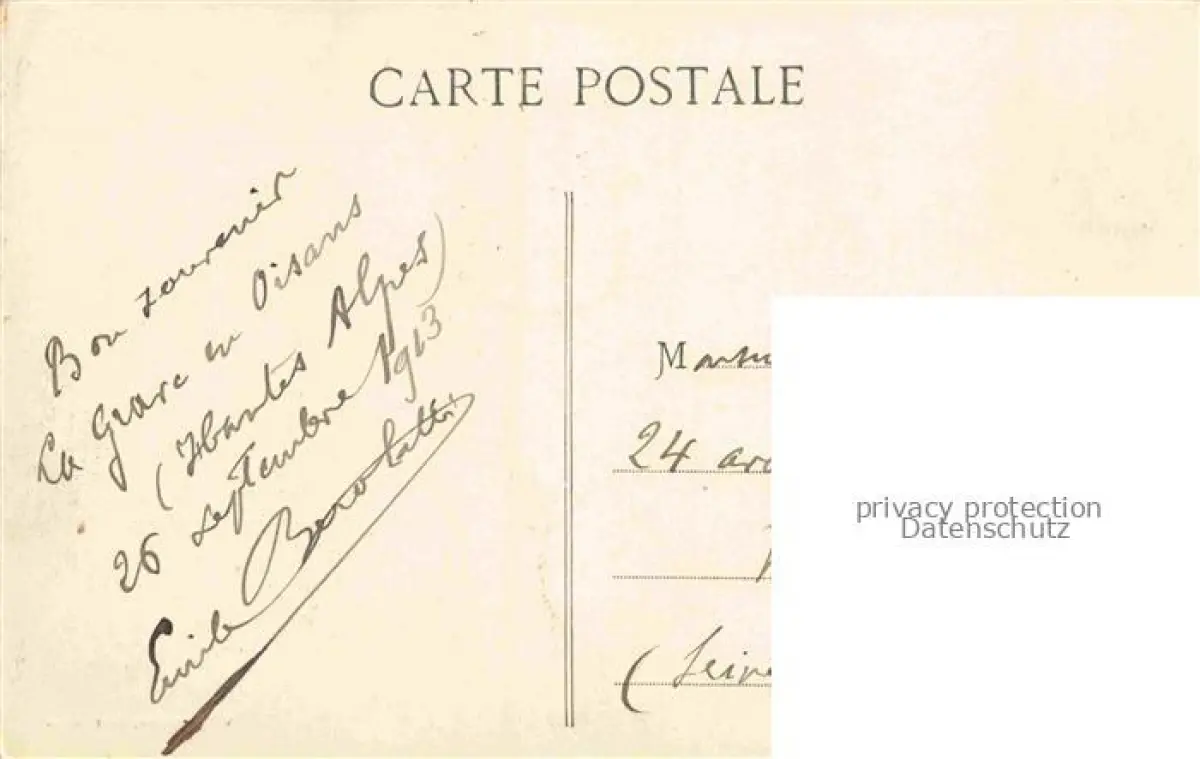 CARTE POSTALE
Bon souvenir
La Grave en Oisans
(Hautes Alpes)
26 septembre 1913
Emile
M
24
(Seine
privacy protection
Datenschutz